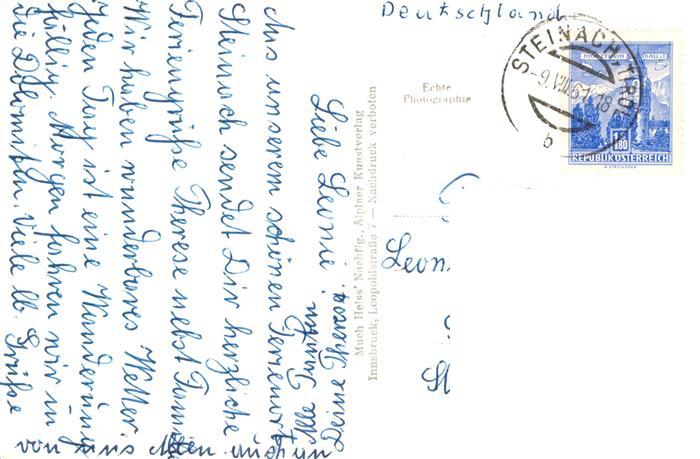 Liebe Leonie!
Aus unserem schönen Ferienort
Steinach sendet Dir herzliche
Feriengrüße Therese nebst Fam
Wir haben wunderbares Wetter.
Jeden Tag ist eine Wanderung
fällig. Morgen fahren wir in
die Dolomiten. Viele lb. Grüße
von uns allen auch an
alle
Deine Therese.
Much Heiss' Nachflg., Alpiner Kunstverlag
Innsbruck, Leopoldstraße 7 — Nachdruck verboten
Echte
Photographie
Deutschland
STEINACH, TIROL
-9.VIII.61-18
b
MÜNZTURM HALL I. T.
S
1.80
REPUBLIK ÖSTERREICH
Leon
St